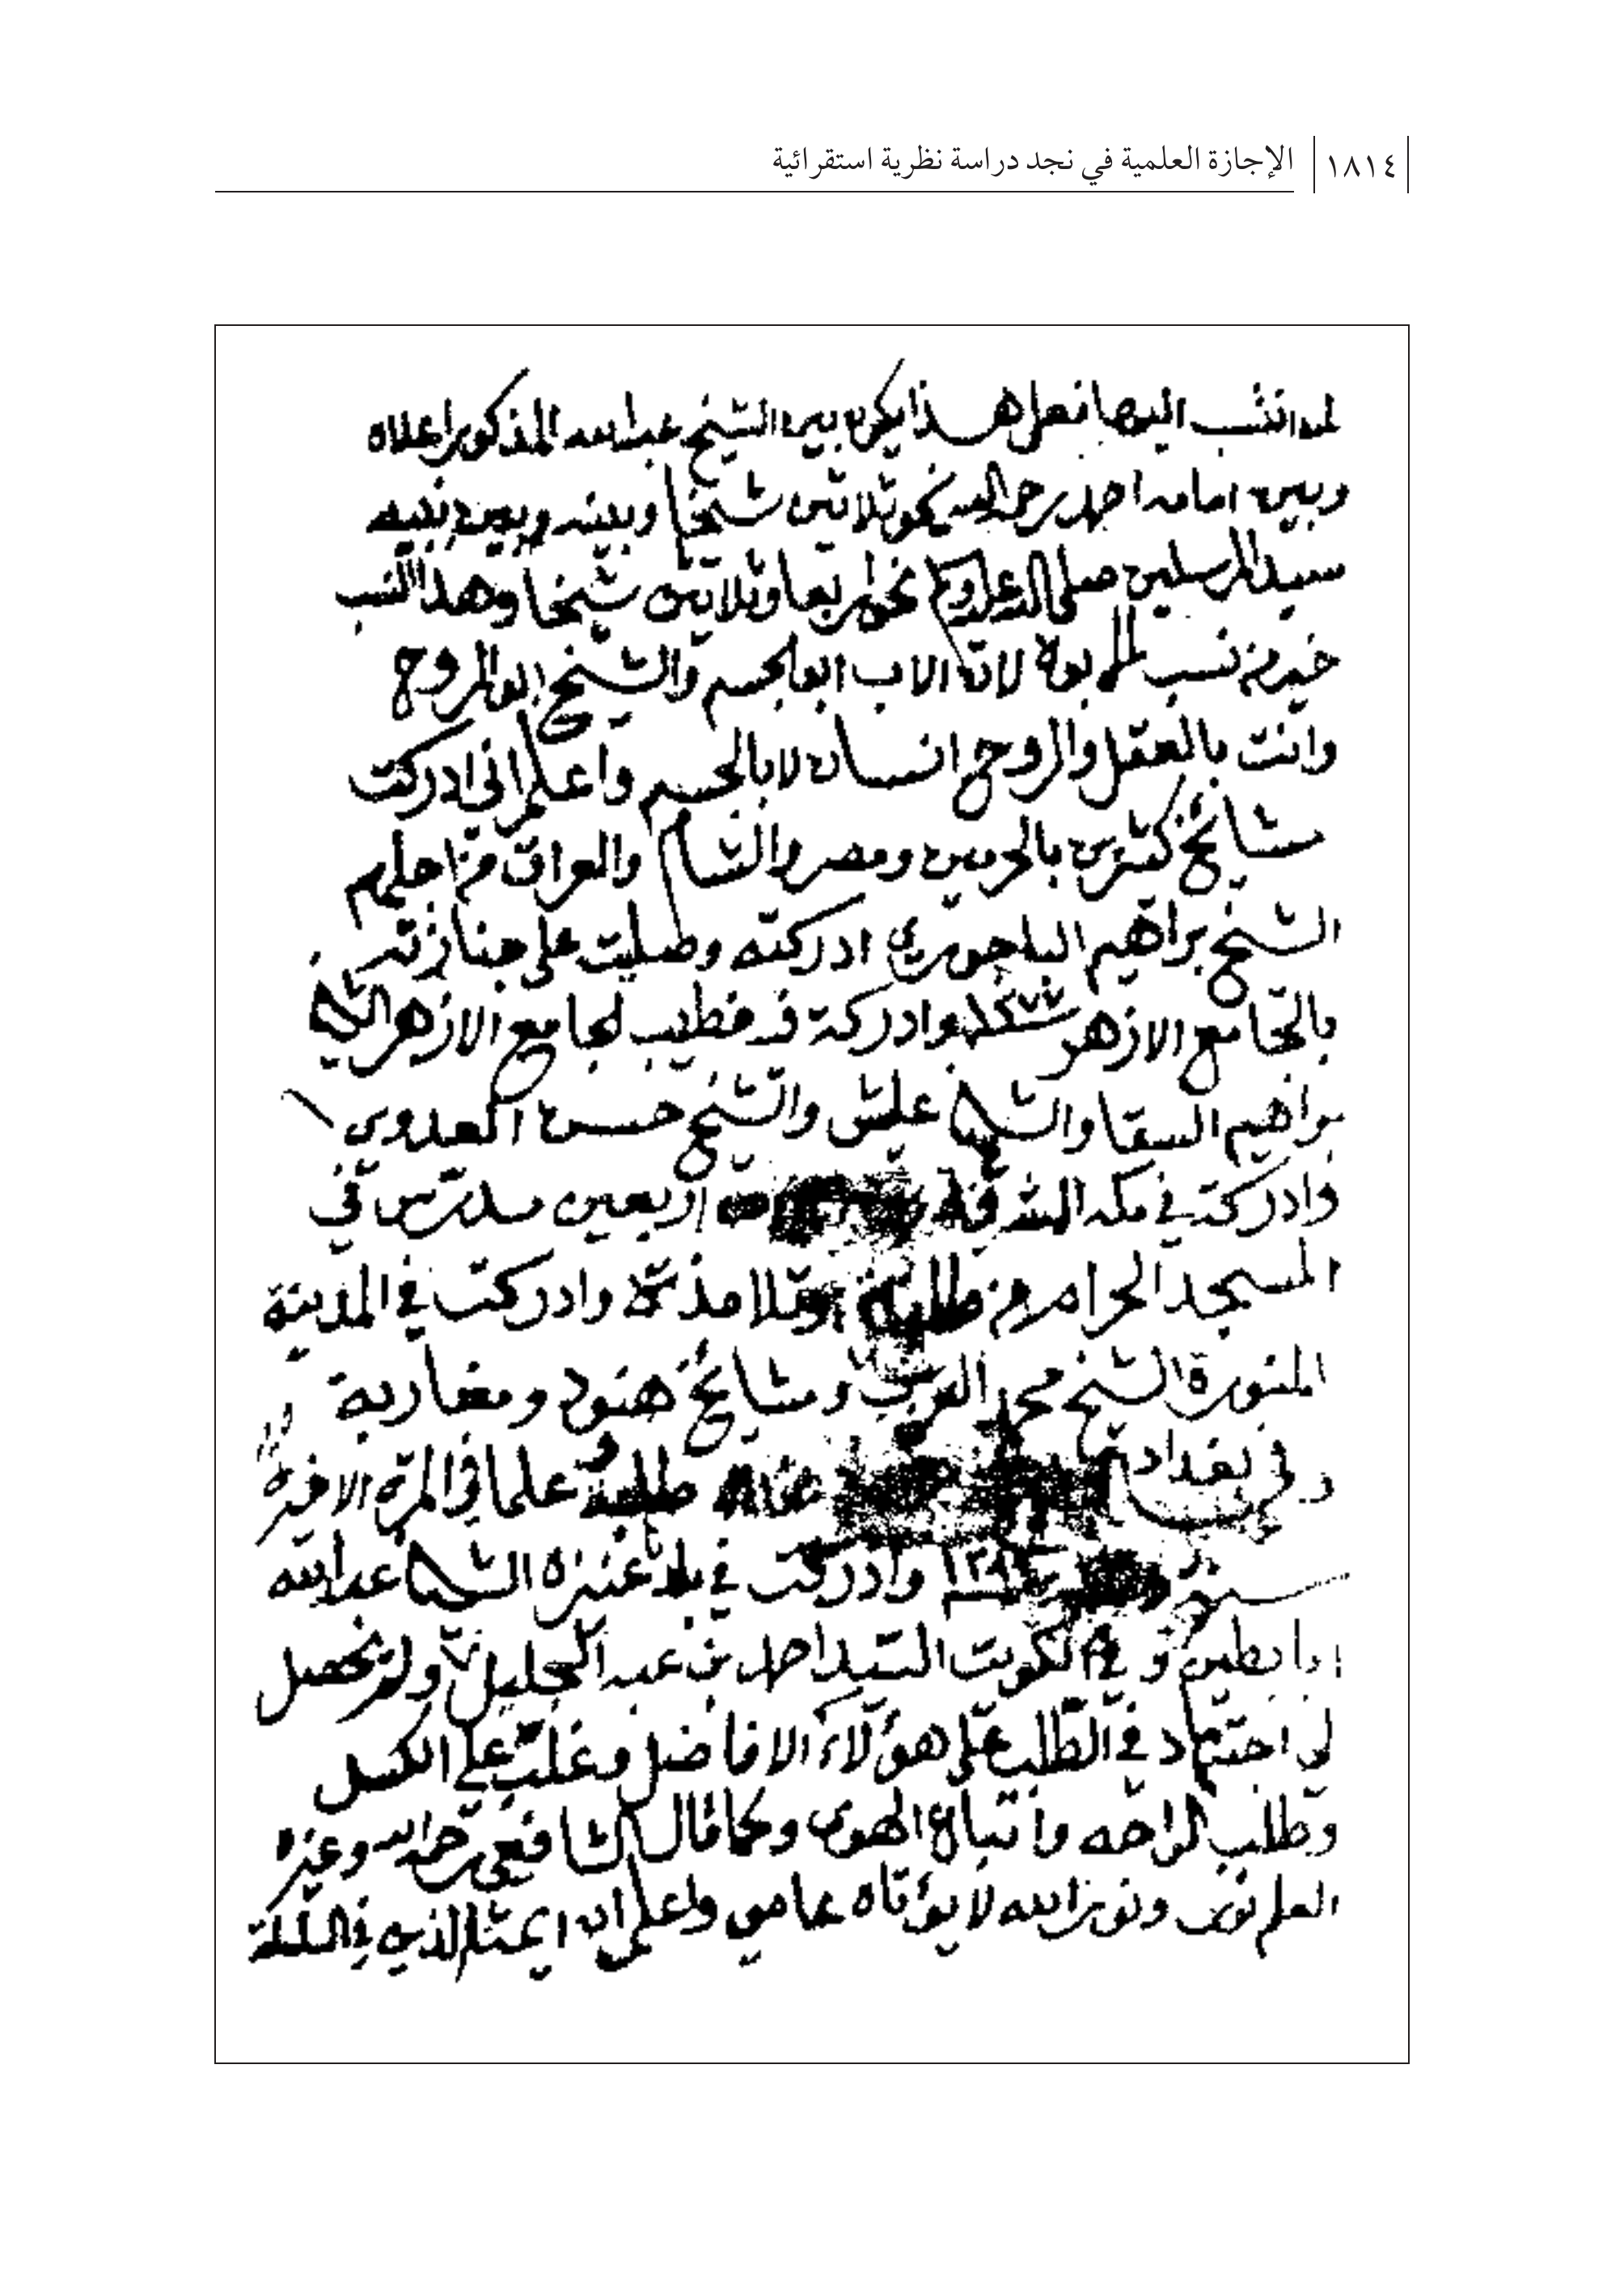 ١٨١٤ الإجازة العلمية في نجد دراسة نظرية استقرائية
لمن انتسب اليها فعل هذا يكون بين الشيخ عبدالله المذكور اعلاه
وبين امامه احمد رحمه الله نحو ثلاثين شيخا وبينه وبين نبيه
سيد المرسلين صلى الله عليه وسلم نحو اربعا وثلاثين شيخا وهذا النسب
خير من نسب الابوة لان الاب ابو الجسم والشيخ ابو الروح
وانت بالعقل والروح انسان لا بالجسم واعلم اني ادركت
مشايخ كثيرين بالحرمين ومصر والشام والعراق فمن اجلهم
الشيخ براهيم الباجوري ادركته وصليت على جنازته
بالجامع الازهر وادركة خطيب لجامع الازهر الشيخ
براهيم السقا والشيخ عليش والشيخ حسن العدوي
وادركت في مكه المشرفة اربعين مدرس في
المسجد الحرام من طلابه وتلامذته وادركت في المدينة
المنورة الشيخ محمد العزب ومشايخ هنود ومغاربة
وفي بغداد طلبة علما في المرة الاخيرة
سنة وادركت في بلد عنيزه الشيخ عبدالله
ابابطين وفي الكويت السيد احمد بن عبد الجليل ولم يحصل
لي اجتهاد في الطلب على هؤلاء الافاضل وغلب علي الكسل
وطلب الراحه واتباع الهوى وكما قال الشافعي رحمه الله وغيره
العلم نور ونور الله لا يؤتاه عاصي واعلم ان الذين في